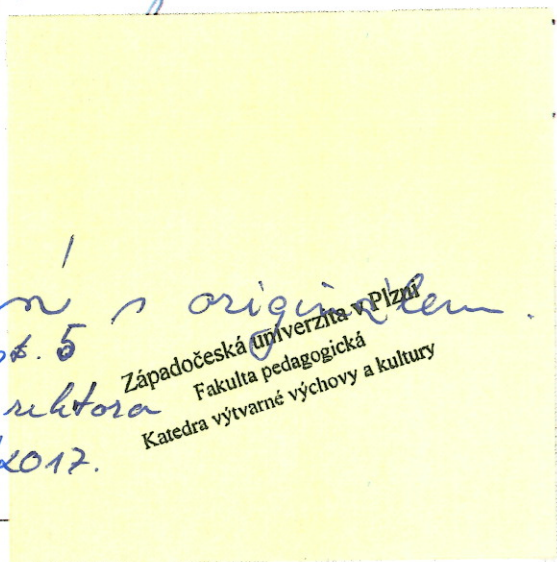 s originálem.
st. 5
rektora
2017.
Západočeská univerzita v Plzni
Fakulta pedagogická
Katedra výtvarné výchovy a kultury